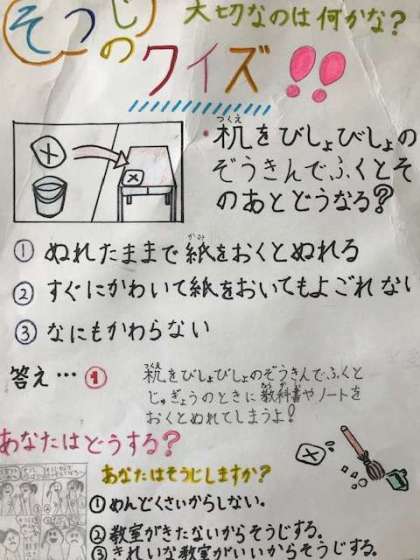 そうじの
大切なのは何かな?
クイズ!!
・机をびしょびしょの
つくえ
ぞうきんでふくとそ
のあとどうなる?
① ぬれたままで紙をおくとぬれる
かみ
② すぐにかわいて紙をおいてもよごれない
③ なにもかわらない
答え…①
机をびしょびしょのぞうきんでふくと
じゅぎょうのときに教科書やノートを
おくとぬれてしまうよ!
あなたはどうする?
あなたはそうじしますか?
①めんどくさいからしない。
②教室がきたないからそうじする。
③きれいな教室がいいからそうじする。